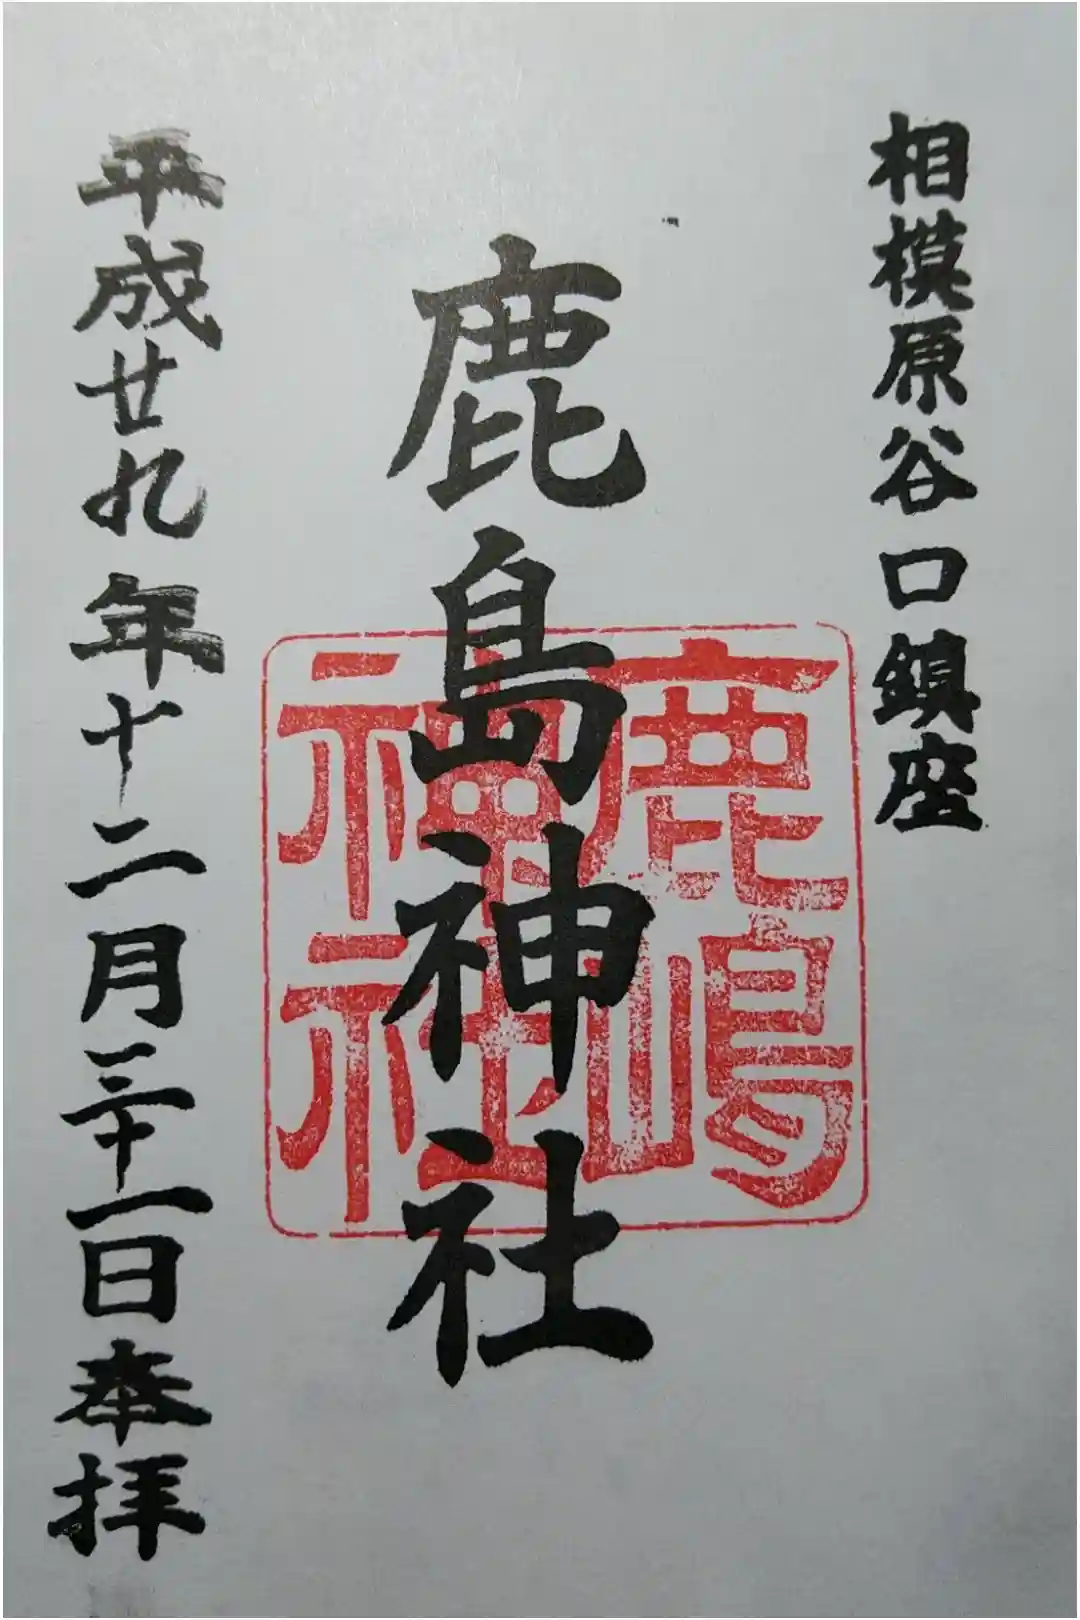 相模原谷口鎮座
鹿島神社
鹿嶋神社
平成廿九年十二月三十一日奉拝